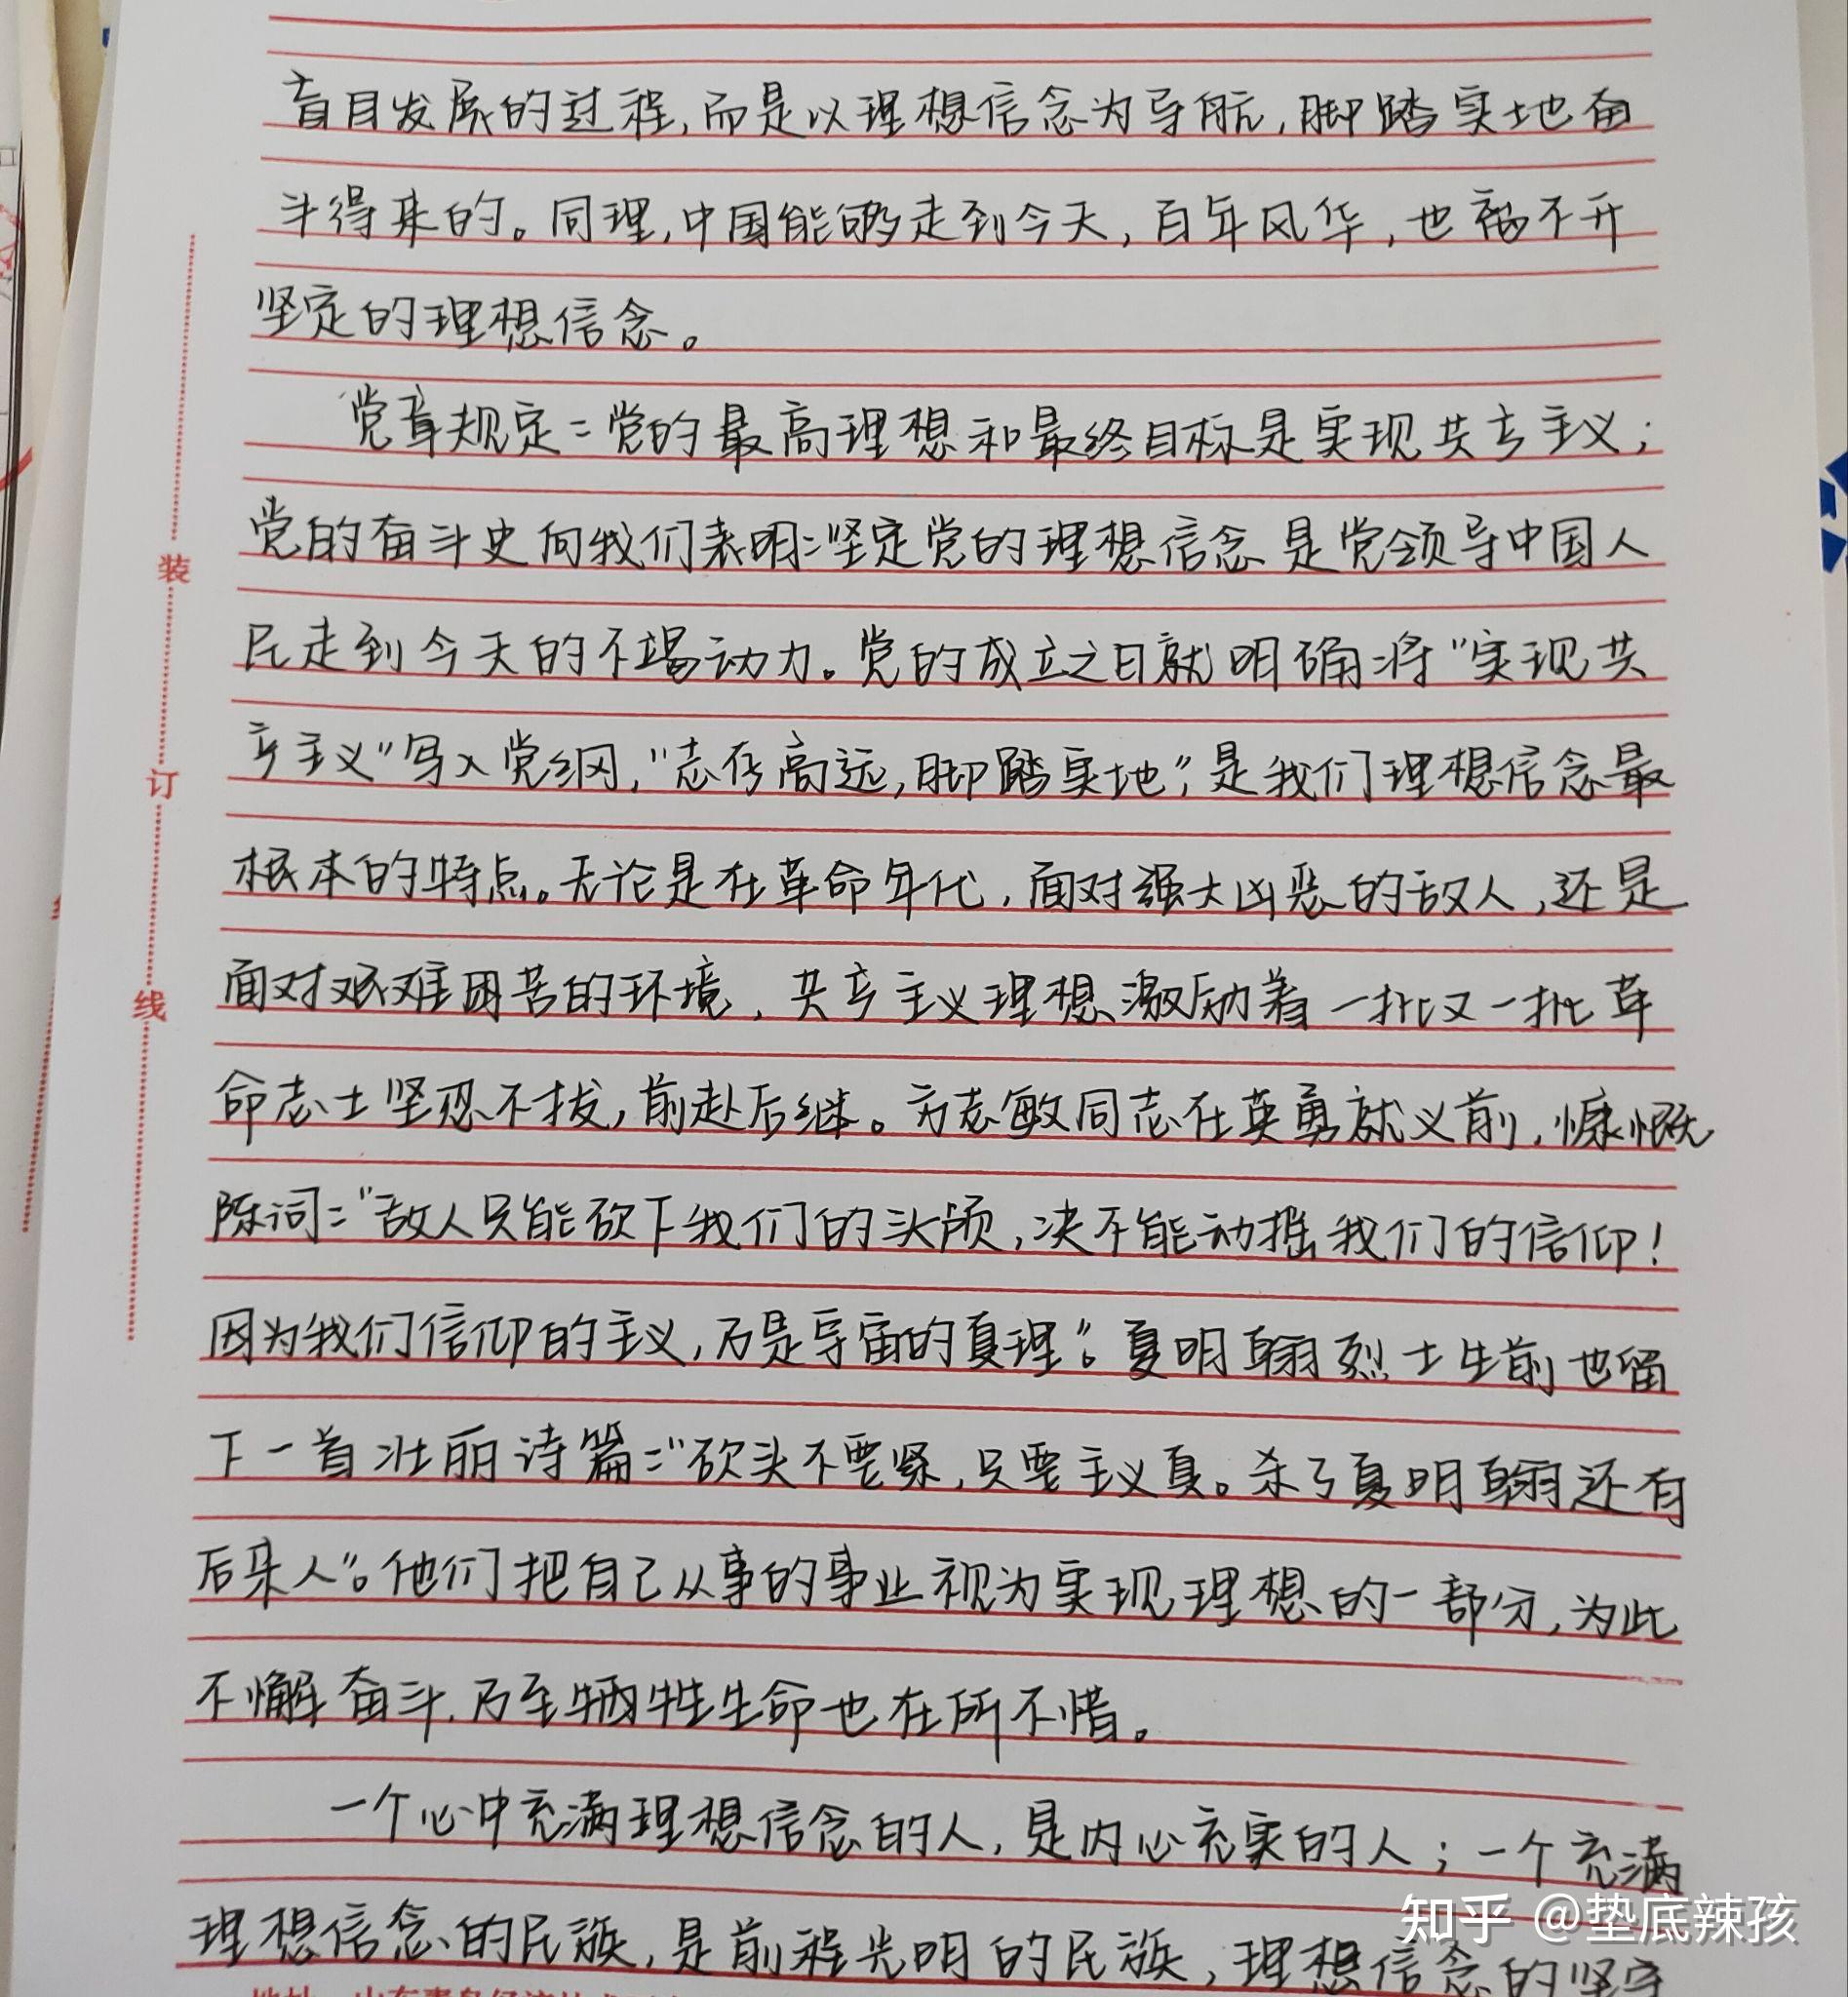 盲目发展的过程,而是以理想信念为导航,脚踏实地奋
斗得来的。同理,中国能够走到今天,百年风华,也离不开
坚定的理想信念。
党章规定:党的最高理想和最终目标是实现共产主义;
党的奋斗史向我们表明:坚定党的理想信念是党领导中国人
民走到今天的不竭动力。党的成立之日就明确将“实现共
产主义”写入党纲,“志存高远,脚踏实地”,是我们理想信念最
根本的特点。无论是在革命年代,面对强大凶恶的敌人,还是
面对艰难困苦的环境,共产主义理想激励着一批又一批革
命志士坚忍不拔,前赴后继。方志敏同志在英勇就义前,慷慨
陈词:“敌人只能砍下我们的头颅,决不能动摇我们的信仰!
因为我们信仰的主义,乃是宇宙的真理”。夏明翰烈士生前也留
下一首壮丽诗篇:“砍头不要紧,只要主义真。杀了夏明翰还有
后来人”。他们把自己从事的事业视为实现理想的一部分,为此
不懈奋斗,乃至牺牲生命也在所不惜。
一个心中充满理想信念的人,是内心充实的人;一个充满
理想信念的民族,是前程光明的民族,理想信念的坚守
装
订
线
知乎 @垫底辣孩